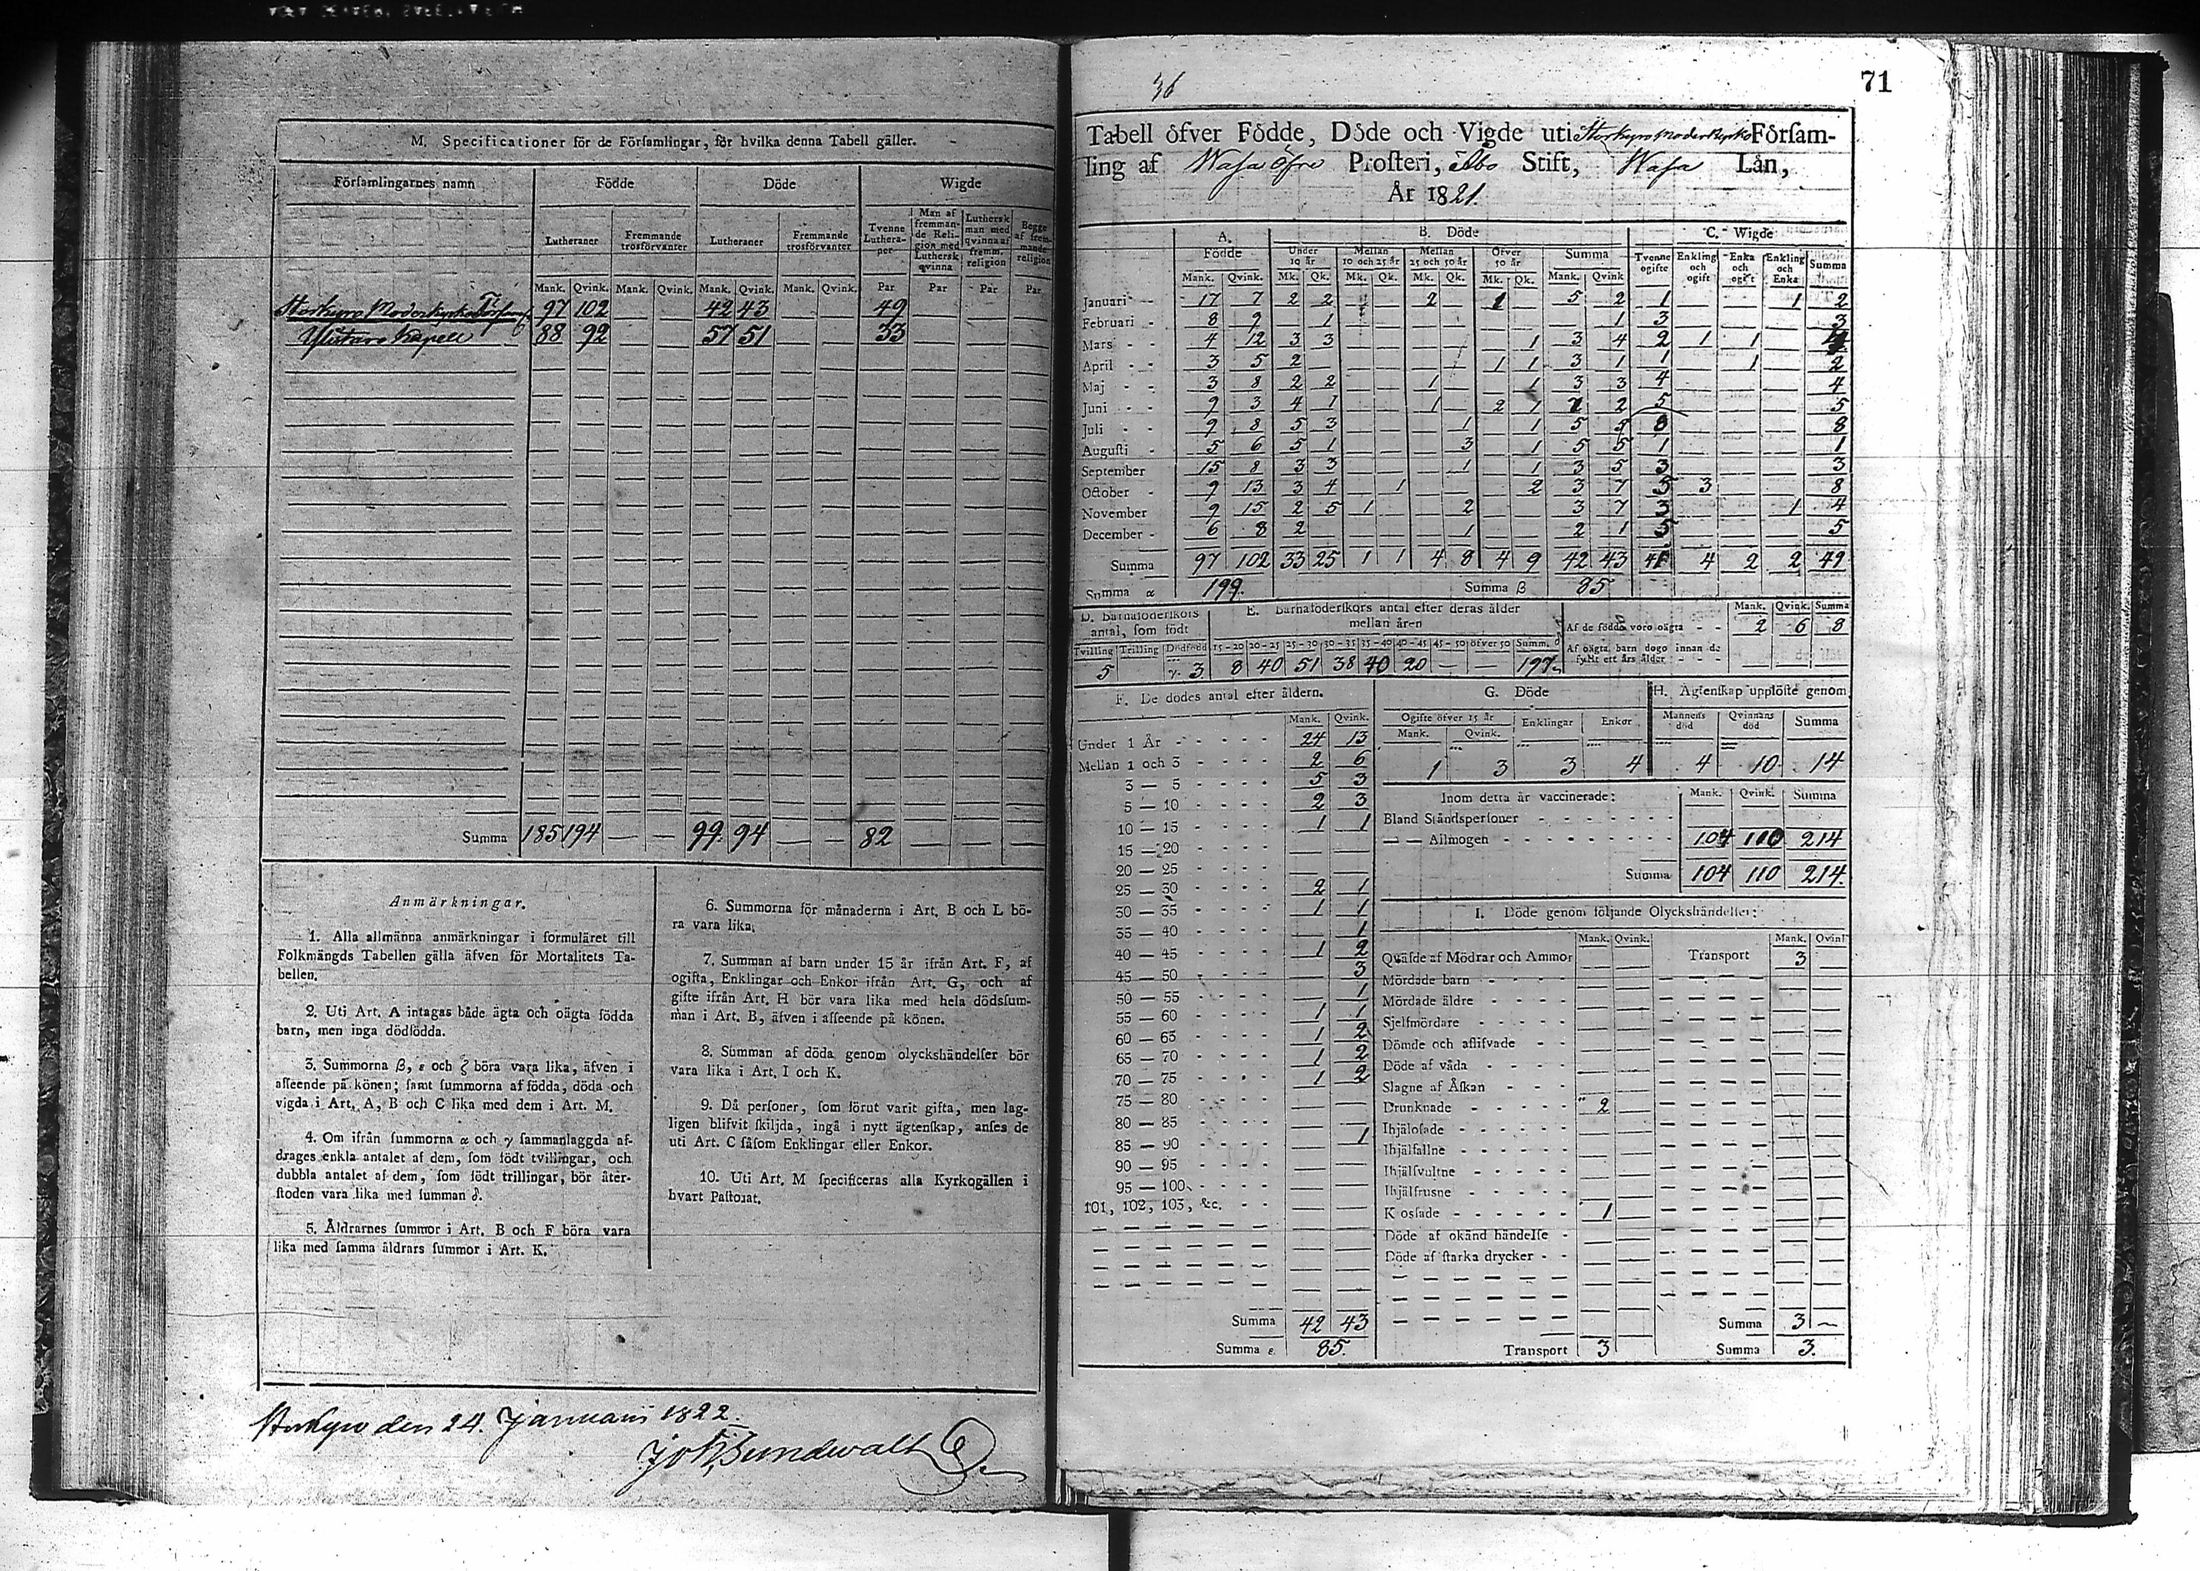 M. Specificationer för de Församlingar, för hvilka denna Tabell gäller.
Församlingarnes namn Födde Döde Wigde
Lutheraner Fremmande trosförvanter Lutheraner Fremmande trosförvanter Tvenne Lutheraner Man af fremmande Religion med Luthersk qvinna Luthersk man med qvinna af fremm. religion Begge af fremmande religion
Mank. Qvink. Mank. Qvink. Mank. Qvink. Mank. Qvink. Par Par Par Par
Storkyro Moderkyrko Förs. 97 102 — — 42 43 — — 49 — — —
Ylistaro Kapell 88 92 — — 57 51 — — 33 — — —
Summa 185 194 — — 99. 94 — — 82 — — —
Anmärkningar.
1. Alla allmänna anmärkningar i formuläret till
Folkmängds Tabellen gälla äfven för Mortalitets Ta-
bellen.
2. Uti Art. A intagas både ägta och oägta födda
barn, men inga dödfödda.
3. Summorna β, ε och ζ böra vara lika, äfven i
afseende på könen; samt summorna af födda, döda och
vigda i Art. A, B och C lika med dem i Art. M.
4. Om ifrån summorna α och γ sammanlaggda af-
drages enkla antalet af dem, som födt tvillingar, och
dubbla antalet af dem, som födt trillingar, bör åter-
stoden vara lika med summan δ.
5. Åldrarnes summor i Art. B och F böra vara
lika med samma åldrars summor i Art. K.
6. Summorna för månaderna i Art. B och L bö-
ra vara lika.
7. Summan af barn under 15 år ifrån Art. F, af
ogifta, Enklingar och Enkor ifrån Art. G, och af
gifte ifrån Art. H bör vara lika med hela dödssum-
man i Art. B, äfven i afseende på könen.
8. Summan af döda genom olyckshändelser bör
vara lika i Art. I och K.
9. Då personer, som förut varit gifta, men lag-
ligen blifvit skiljda, ingå i nytt ägtenskap, anses de
uti Art. C såsom Enklingar eller Enkor.
10. Uti Art. M specificeras alla Kyrkogällen i
hvart Pastorat.
Storkyro den 24. Januarii 1822.
Joh. Sundwall
36
71
Tabell öfver Födde, Döde och Vigde uti Storkyro Moderkyrko Försam-
ling af Wasa öfre Prosteri, Åbo Stift, Wasa Län,
År 1821.
A. Födde B. Döde C. Wigde
Under 10 år Mellan 10 och 25 år Mellan 25 och 50 år Öfver 50 år Summa Tvenne ogifte Enkling och ogift Enka och ogift Enkling och Enka Summa
Mank. Qvink. Mk. Qk. Mk. Qk. Mk. Qk. Mk. Qk. Mank. Qvink
Januari 17 7 2 2 — — 2 — 1 — 5 2 1 — — 1 2
Februari 8 9 — 1 — — — — — — — 1 3 — — — 3
Mars 4 12 3 3 — — — — — 1 3 4 2 1 1 —
April 3 5 2 — — — — — 1 1 3 1 1 — 1 — 2
Maj 3 8 2 2 — — 1 — — 1 3 3 4 — — — 4
Juni 9 3 4 1 — — 1 — 2 1 7 2 5 — — — 5
Juli 9 8 5 3 — — — 1 — 1 5 5 8 — — — 8
Augusti 5 6 5 1 — — — 3 — 1 5 5 1 — — — 1
September 15 8 3 3 — — — 1 — 1 3 5 3 — — — 3
October 9 13 3 4 — 1 — — — 2 3 7 5 3 — — 8
November 9 15 2 5 1 — — 2 — — 3 7 3 — — 1 4
December 6 8 2 — — — — 1 — — 2 1 5 — — — 5
Summa 97 102 33 25 1 1 4 8 4 9 42 43 41 4 2 2 49
Summa α 199. Summa β 85
D. Barnaföderskors antal, som födt
E. Barnaföderskors antal efter deras ålder mellan åren
Mank. Qvink. Summa
Af de födda voro oägta 2 6 8
Af oägta barn dogo innan de fyllt ett års ålder — — —
Tvilling Trilling Dödfödd 15-20 20-25 25-30 30-35 35-40 40-45 45-50 öfver 50 Summ. δ
5 γ. 3. 8 40 51 38 40 20 — — 197.
F. De dödes antal efter åldern.
Mank. Qvink.
Under 1 År 24 13
Mellan 1 och 3 2 6
3 — 5 5 3
5 — 10 2 3
10 — 15 1 1
15 — 20 — —
20 — 25 — —
25 — 30 2 1
30 — 35 1 1
35 — 40 — 1
40 — 45 1 2
45 — 50 — 3
50 — 55 — 1
55 — 60 1 1
60 — 65 1 2
65 — 70 1 2
70 — 75 1 2
75 — 80 — —
80 — 85 — —
85 — 90 — 1
90 — 95 — —
95 — 100 — —
101, 102, 103, &c. — —
Summa 42 43
Summa ε 85.
G. Döde
Ogifte öfver 15 år Enklingar Enkor
Mank. Qvink.
1 3 3 4
H. Ägtenskap upplöste genom
Mannens död Qvinnans död Summa
4 10 14
Inom detta år vaccinerade: Mank. Qvink. Summa
Bland Ståndspersoner — — —
— — Allmogen 104 110 214
Summa 104 110 214.
I. Döde genom följande Olyckshändelser:
Mank. Qvink. Mank. Qvink
Qväfde af Mödrar och Ammor — — Transport 3 —
Mördade barn
Mördade äldre
Sjelfmördare
Dömde och aflifvade
Döde af våda
Slagne af Åskan
Drunknade 2
Ihjälosade
Ihjälfallne
Ihjälsvultne
Ihjälfrusne
Krossade 1
Döde af okänd händelse
Döde af starka drycker
Summa 3 —
Transport 3 Summa 3.